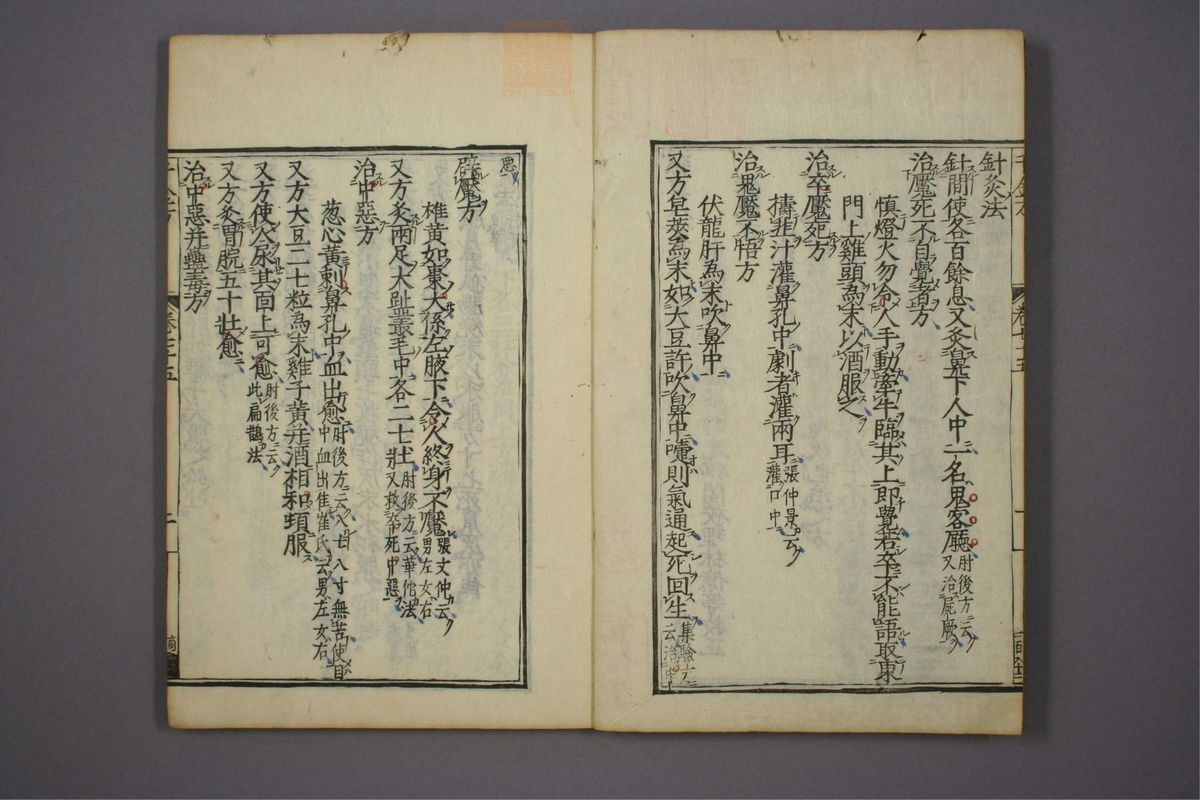 針灸法
針間使各百餘息又灸鼻下人中一名鬼客廳肘後方云又治屍厥
治魘死不自覺者方
慎燈火勿令人手動牽牛臨其上即覺若卒不能語取東
門上雞頭為末以酒服之
治卒魘死方
擣韭汁灌鼻孔中劇者灌兩耳張仲景云灌口中
治鬼魘不悟方
伏龍肝為末吹鼻中
又方皂莢為末如大豆許吹鼻中嚏則氣通起死回生集驗方云治中
惡
辟魘方
雄黃如棗大係左腋下令人終身不魘張文仲云男左女右
又方灸兩足大趾叢毛中各二七壯肘後方云華佗法又救卒死中惡
治中惡方
葱心黃刺鼻孔中血出愈肘後方云入七八寸無苦使目中血出佳崔氏云男左女右
又方大豆二七粒為末雞子黃并酒相和頓服
又方使人尿其面上可愈肘後方云此扁鵲法
又方灸胃脘五十壯愈
治中惡并蠱毒方
千金方
卷二十五